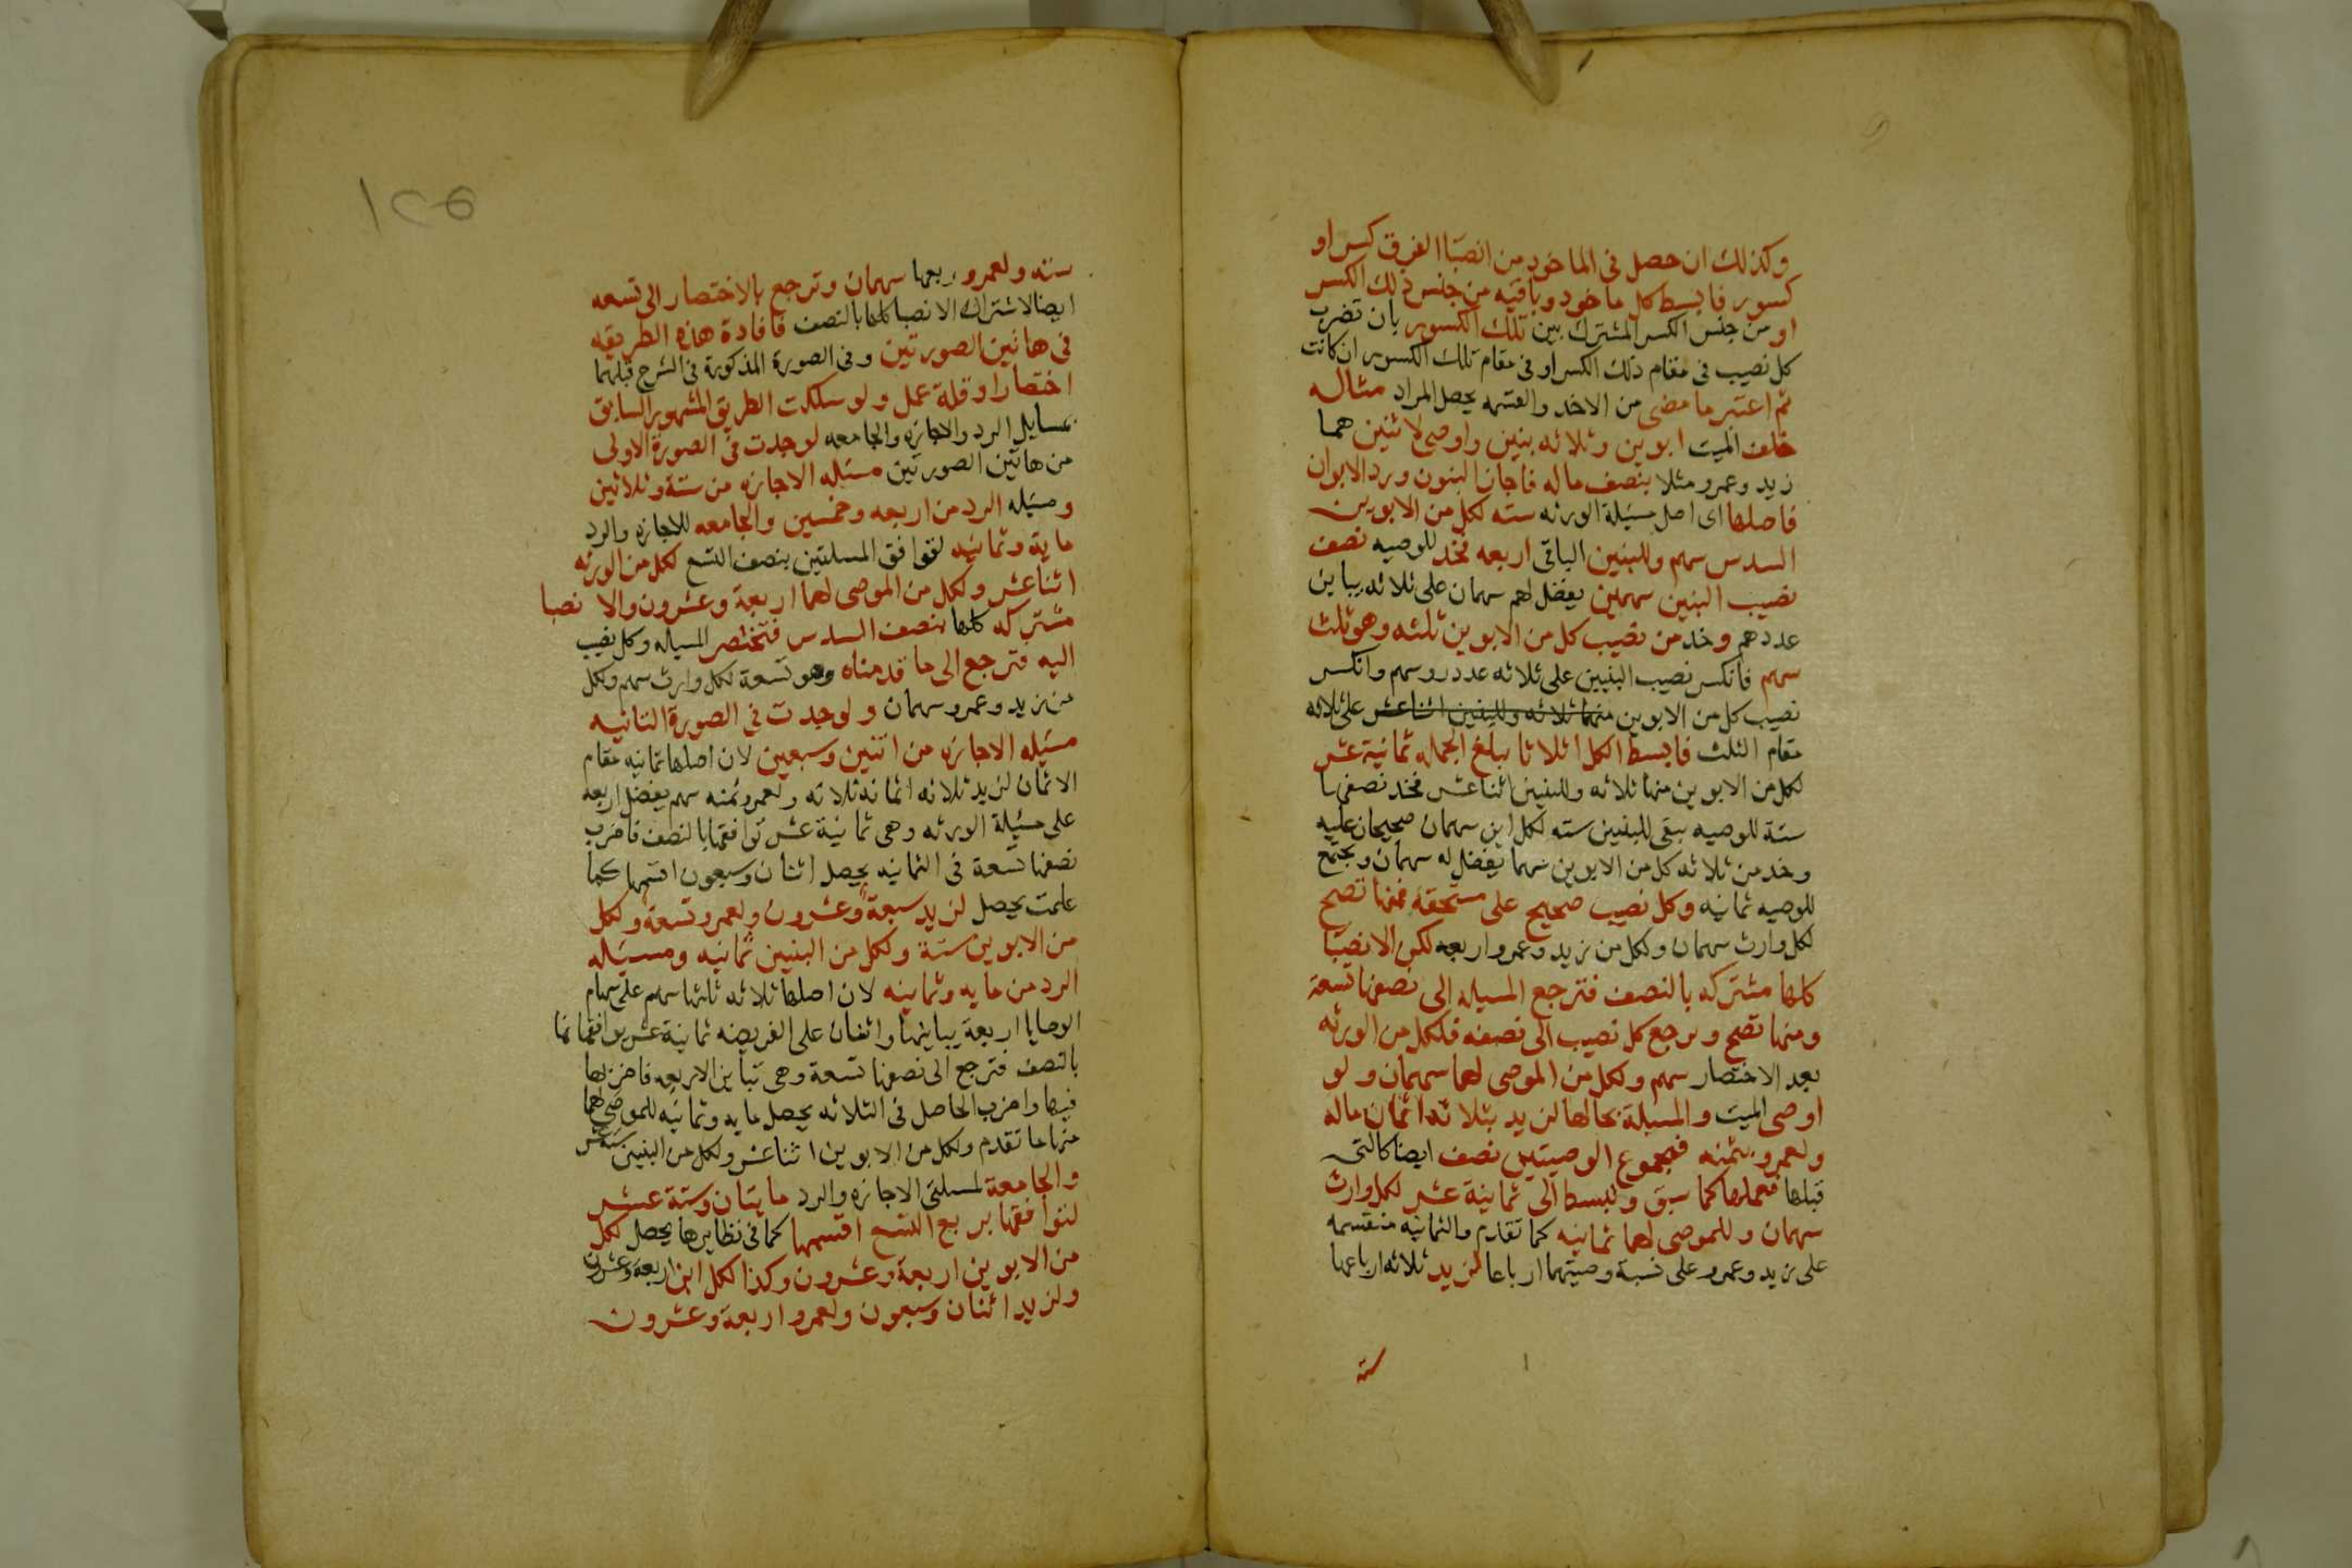 وكذلك ان حصل فى الماخود من انصبا الفرق كسر او
كسور فابسط كل ماخود وباقيه من جنس ذلك الكسر
او من جنس الكسر المشترك بين تلك الكسور بان تضرب
كل نصيب فى مقام ذلك الكسر او فى مقام تلك الكسور ان كانت
ثم اعتبر ما مضى من الاخد والقسمه يحصل المراد مثاله
خلف الميت ابوين وثلاثه بنين واوصى لاثنين هما
زيد وعمرو مثلا بنصف ماله فاجاز البنون ورد الابوان
فاصلها اى اصل مسئلة الورثه سته لكل من الابوين
السدس سهم وللبنين الباقى اربعه فخد للوصيه نصف
نصيب البنين سهمين يفضل لهم سهمان على ثلاثه يباين
عددهم وخد من نصيب كل من الابوين ثلثه وهو ثلث
سهم فانكسر نصيب البنين على ثلاثه عدد روسهم وانكسر
نصيب كل من الابوين منهما ثلاثه وللبنين اثنا عشر على ثلاثه
مقام الثلث فابسط الكل اثلاثا يبلغ الجمله ثمانية عشر
لكل من الابوين منها ثلاثه وللبنين اثنا عشر فخد نصفها
ستة للوصيه يبقى للبنين سته لكل ابن سهمان صحيحان عليه
وخد من ثلاثه كل من الابوين سهما يفضل له سهمان ويجتمع
للوصيه ثمانيه وكل نصيب صحيح على مستحقه فمنها تصح
لكل وارث سهمان ولكل من زيد وعمرو اربعه لكن الانصبا
كلها مشتركه بالنصف فترجع المسيله الى نصفها تسعة
ومنها تصح ويرجع كل نصيب الى نصفه فلكل من الورثه
بعد الاختصار سهم ولكل من الموصى لهما سهمان ولو
اوصى الميت والمسيلة بحالها لزيد بثلاثه اثمان ماله
ولعمرو بثمنه فمجموع الوصيتين نصف ايضا كالتى
قبلها فعملها كما سبق وللبسط الى ثمانية عشر لكل وارث
سهمان وللموصى لهما ثمانيه كما تقدم والثمانيه منقسمه
على زيد وعمرو على نسبة وصيتهما ارباعا لزيد ثلاثه ارباعها
سته
١٢٥
سته ولعمرو ربعها سهمان وترجع بالاختصار الى تسعه
ايضا لاشتراك الانصبا كلها بالنصف فافادة هذه الطريقه
فى هاتين الصورتين وفى الصورة المذكورة فى الشرح قبلهما
اختصارا وقلة عمل ولو سلكت الطريق المشهور السابق
بمسايل الرد والاجازه والجامعه لوجدت فى الصورة الاولى
من هاتين الصورتين مسئله الاجازه من ستة وثلاثين
ومسئله الرد من اربعه وخمسين والجامعه للاجازه والرد
ماية وثمانيه لتوافق المسلتين بنصف التسع لكل من الورثه
اثنا عشر ولكل من الموصى لهما اربعة وعشرون والا نصبا
مشتركه كلها بنصف السدس فتختصر المسياله وكل نصيب
اليه فترجع الى ما قدمناه وهو تسعة لكل وارث سهم ولكل
من زيد وعمرو سهمان ولوجدت فى الصورة الثانيه
مسئله الاجازه من اثنين وسبعين لان اصلها ثمانيه مقام
الاثمان لزيد ثلاثه اثمانه ثلاثه ولعمرو ثمنه سهم يفضل اربعه
على مسئلة الورثه وهى ثمانية عشر توافقها بالنصف فاضرب
نصفها تسعة فى الثمانيه يحصل اثنان وسبعون اقسمها كما
علمت يحصل لزيد سبعة وعشرون ولعمرو تسعة ولكل
من الابوين ستة ولكل من البنين ثمانيه ومسئله
الرد من مايه وثمانيه لان اصلها ثلاثه ثلثها سهم على سهام
الوصايا اربعة يباينها واثنان على الفريضه ثمانية عشر يوافقانها
بالنصف فترجع الى نصفها تسعة وهى تباين الاربعه فاضربها
فيها واضرب الحاصل فى الثلاثه يحصل مايه وثمانيه للموصى لهما
منها ما تقدم ولكل من الابوين اثنا عشر ولكل من البنين ستة عشر
والجامعة لمسلتى الاجازه والرد مايتان وستة عشر
لتوافقها بربع التسع اقسمها كما فى نظايرها يحصل لكل
من الابوين اربعة وعشرون وكذا لكل ابن اربعة وعشرون
ولزيد اثنان وسبعون ولعمرو اربعة وعشرون